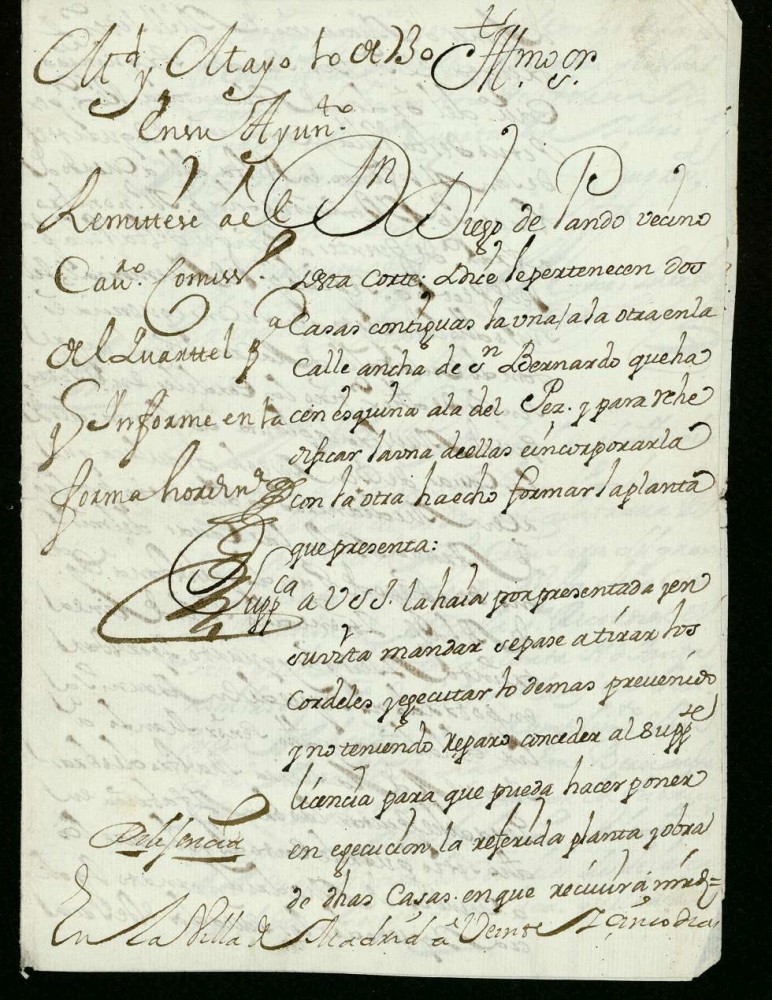 Md y Mayo 10 de 730
En su Ayunto.
Remittese ael
Cavo. Comisso.
del Quarttel pa
q Informe en la
forma hordina
Illmo. Sr.
Dn Diego de Pando vecino
desta Corte: dice le pertenecen dos
Casas contiguas la una a la otra en la
Calle ancha de Sn Bernardo que ha
cen esquina a la del Pez. y para rehe
dificar la una de ellas e incorporarla
con la otra ha echo formar la planta
que presenta:
Suppca a VSI. la haia por presentada y en
su vista mandar se pase a tirar los
Cordeles y egecutar lo demas prevenido
y no teniendo reparo conceder al Suppte
licencia para que pueda hacer poner
en egecucion la referida planta y obra
de dhas Casas. en que recivira mrd=
Dilisencia
En la Villa de Madrid a Veinte y cinco dias